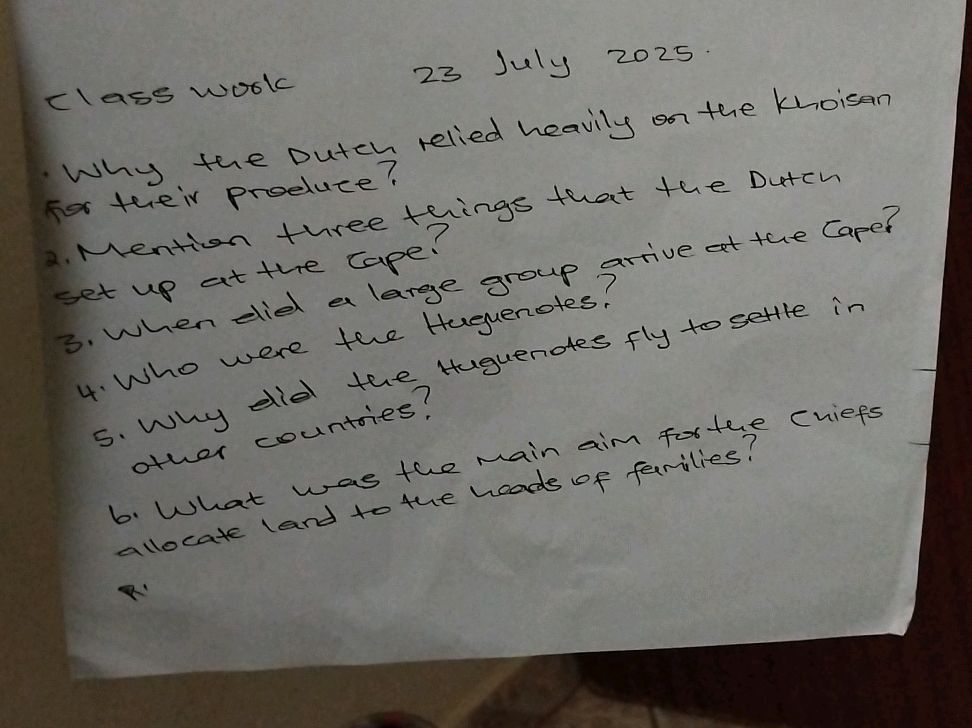 Class work 23 July 2025.
. Why the Dutch relied heavily on the Khoisan
for their produce?
2. Mention three things that the Dutch
set up at the Cape?
3. When did a large group arrive at the Cape?
4. Who were the Huguenotes?
5. Why did the Huguenotes fly to settle in
other countries?
6. What was the main aim for the Chiefs
allocate land to the heads of families?
R.